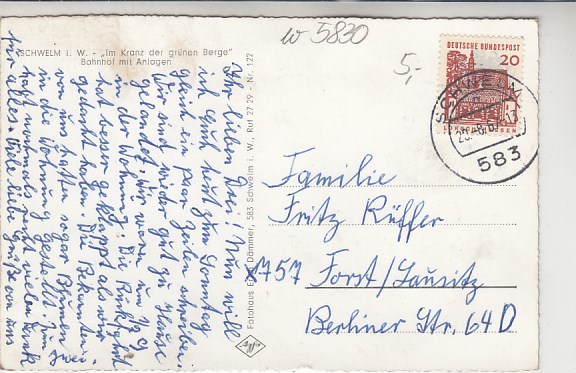 W 5830
SCHWELM i. W. - „Im Kranz der grünen Berge"
Bahnhof mit Anlagen
5,-
DEUTSCHE BUNDESPOST
20
SCHWELM
583
Ihr lieben Drei! Nun will
ich Euch heut zum Sonntag
gleich ein paar Zeilen schreiben.
Wir sind wieder gut zu Hause
gelandet. Wir waren um
in der Wohnung. Die Rückfahrt
hat besser geklappt als wir
gedacht haben. Die Bekannten
von uns hatten sogar Blumen
in die Wohnung gestellt. Zum
nochmals recht vielen Dank
für alles. Viele liebe Grüße von uns
zwei.
Fotohaus Dämmer, 583 Schwelm i. W., Ruf 27 29 - Nr. 122
Familie
Fritz Rüffer
7757 Forst/Lausitz
Berliner Str. 64 D